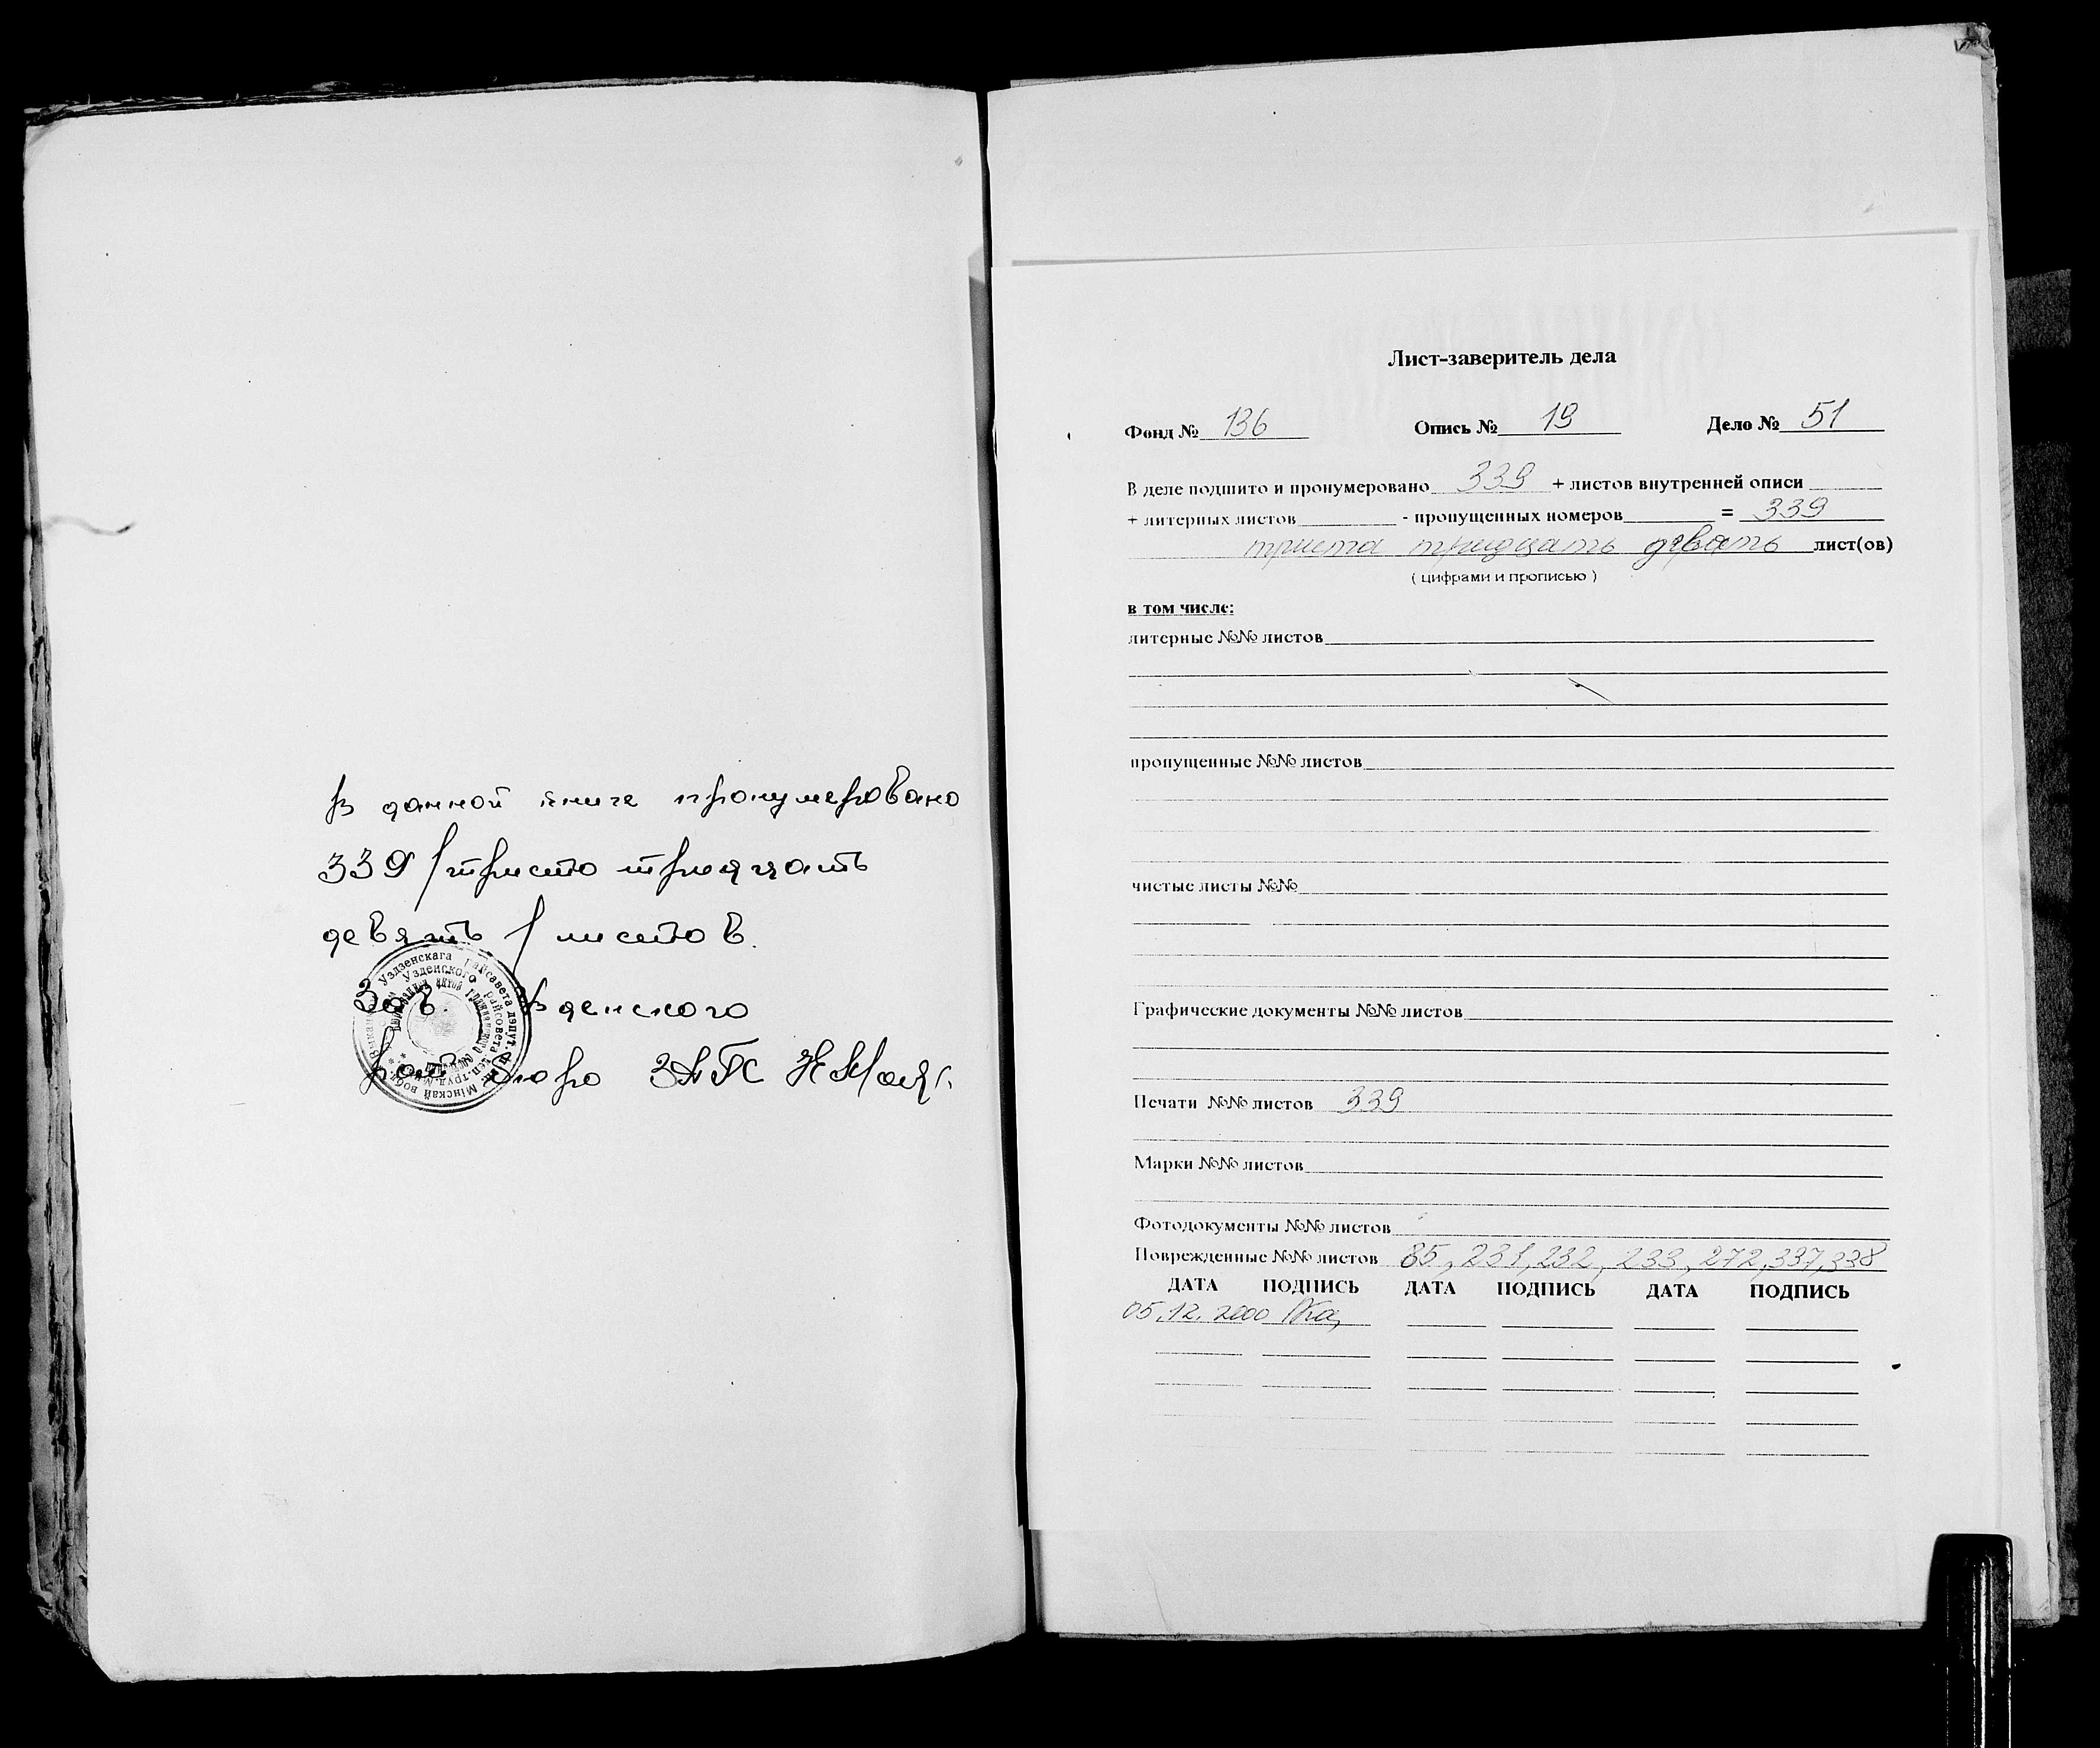 В данной книге пронумеровано
339 /триста тридцать
девять/ листов.
Зав. Узденского
рай бюро ЗАГС
Уздзенскага райсавета дэпут.
Узденского райсовета деп. труд.
Мінскай вобл.
Лист-заверитель дела
Фонд № 136 Опись № 19 Дело № 51
В деле подшито и пронумеровано 339 + листов внутренней описи
+ литерных листов - пропущенных номеров = 339
триста тридцать девять лист(ов)
( цифрами и прописью )
в том числе:
литерные №№ листов
пропущенные №№ листов
чистые листы №№
Графические документы №№ листов
Печати №№ листов 339
Марки №№ листов
Фотодокументы №№ листов
Поврежденные №№ листов 85, 231, 232, 233, 272, 337, 338
ДАТА ПОДПИСЬ ДАТА ПОДПИСЬ ДАТА ПОДПИСЬ
05.12.2000